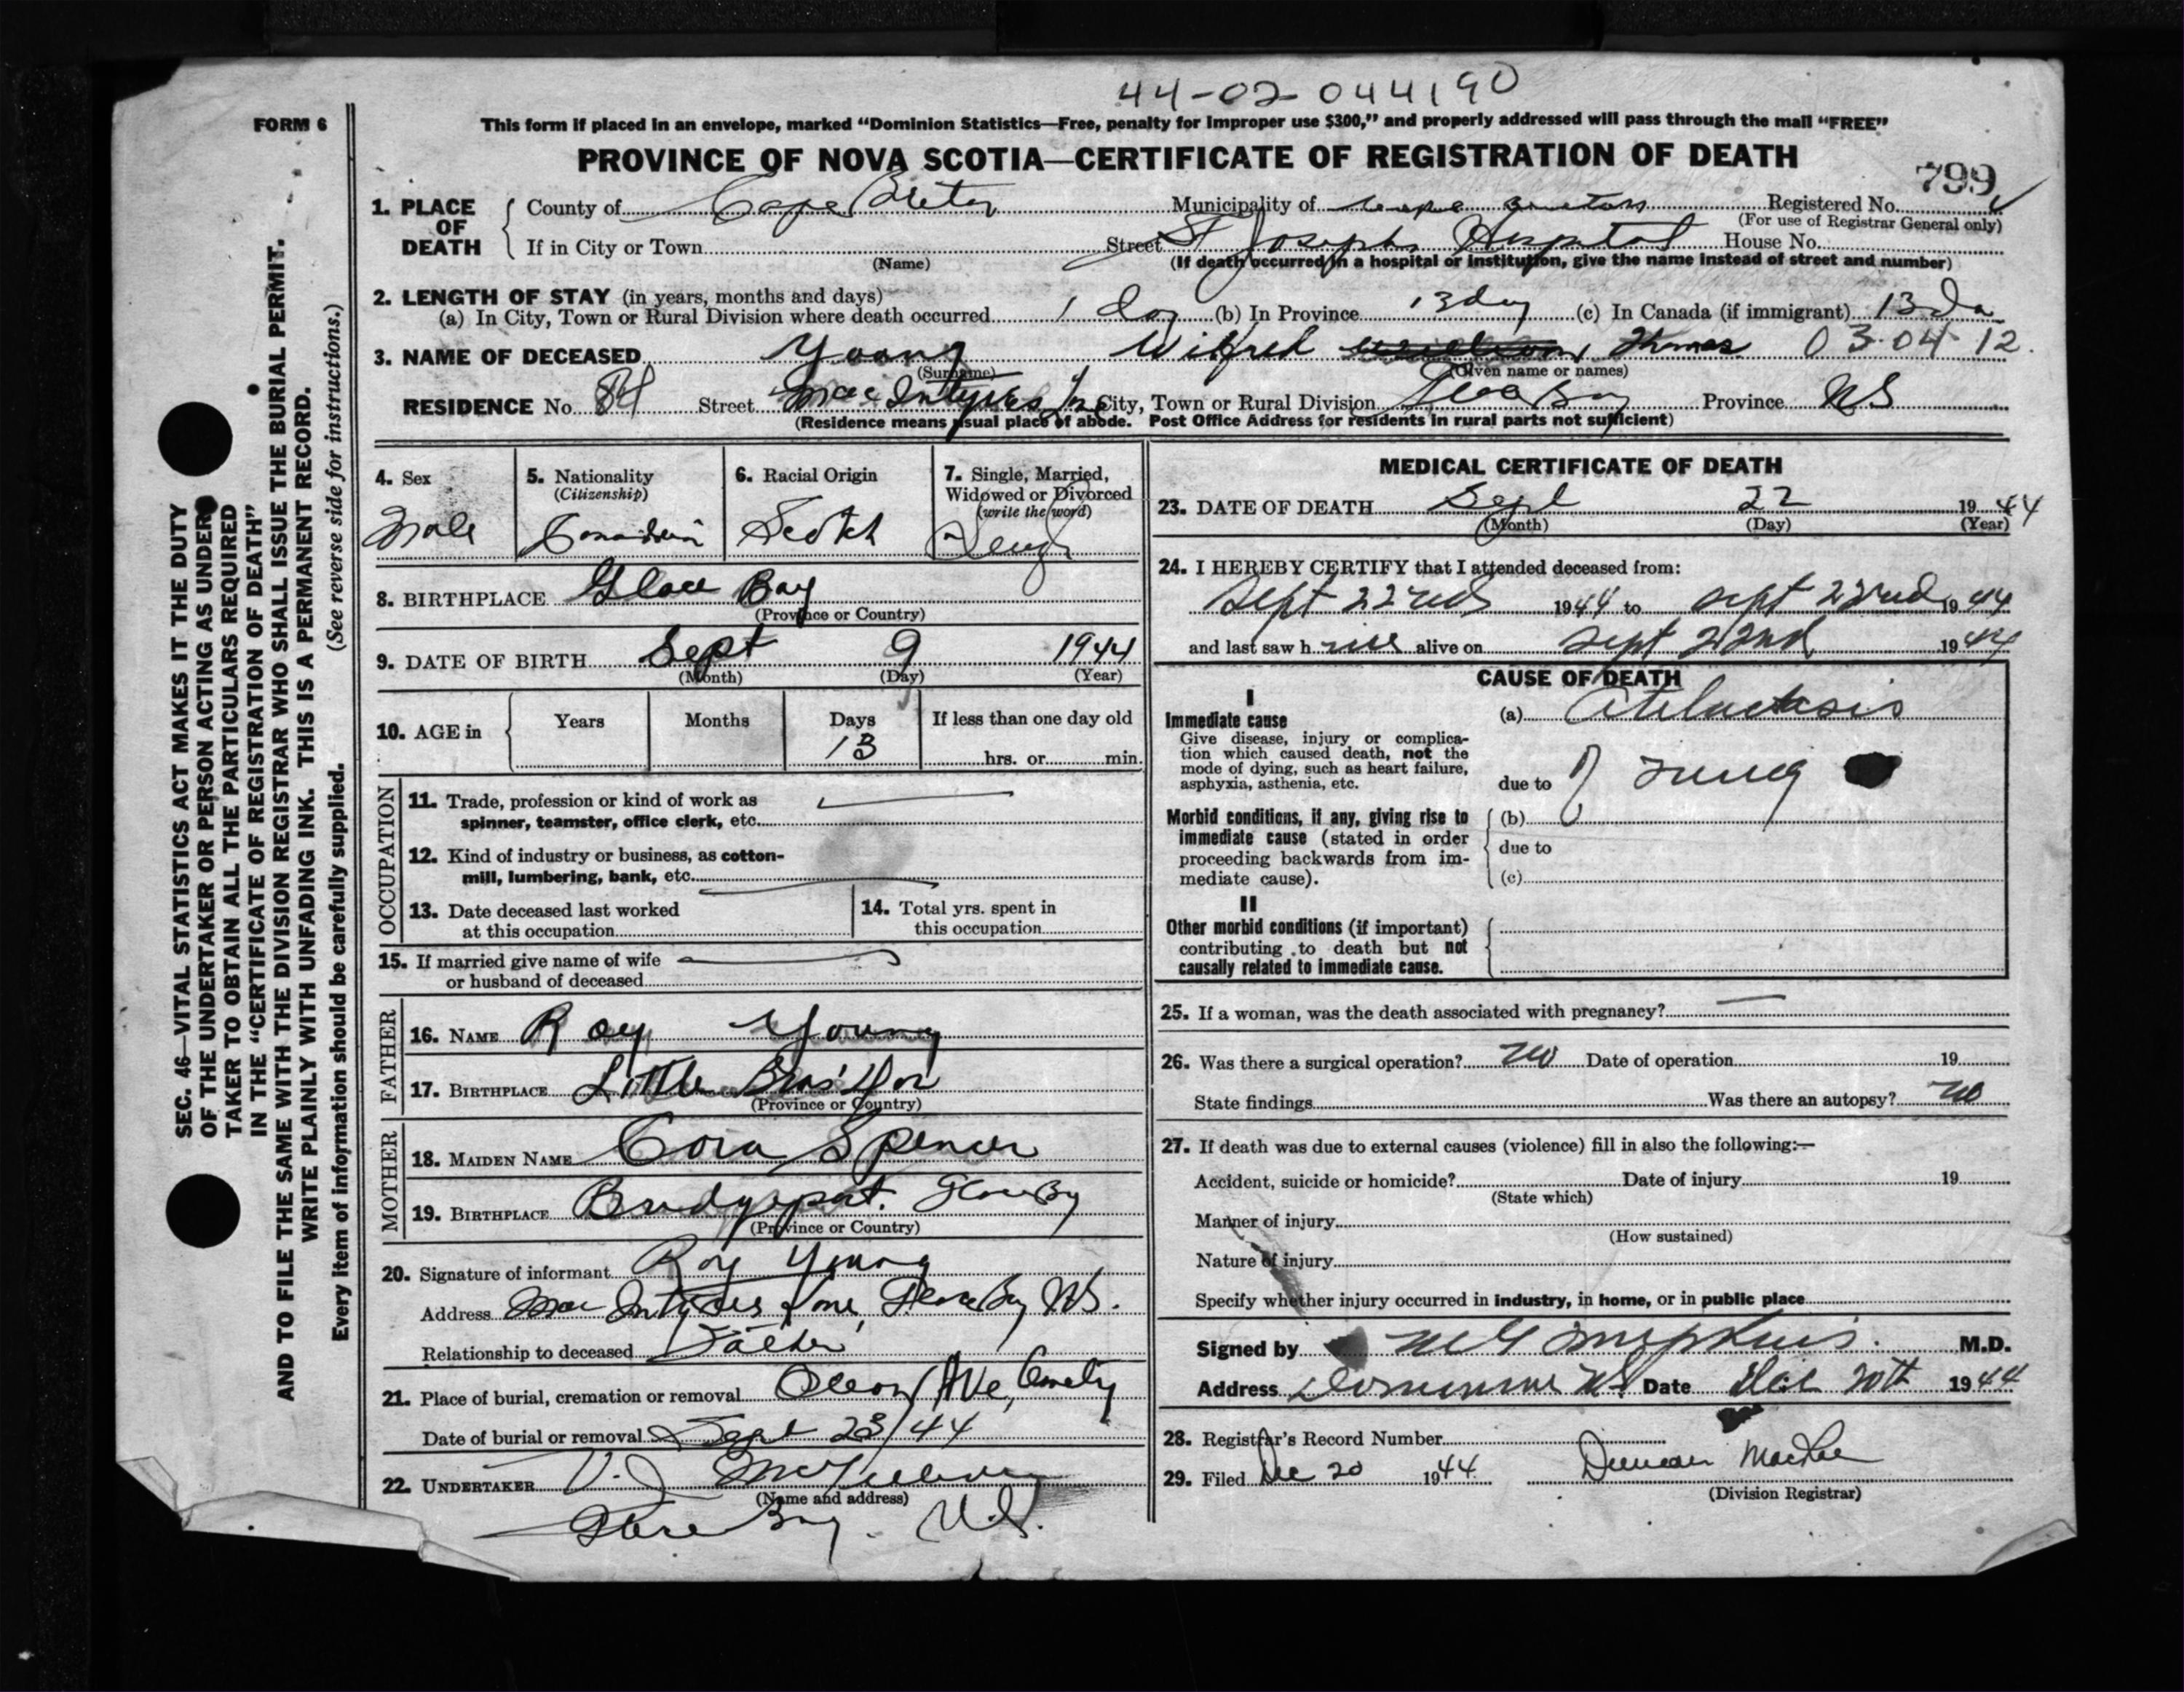 44-02-044190
FORM 6
This form if placed in an envelope, marked "Dominion Statistics—Free, penalty for improper use $300," and properly addressed will pass through the mail "FREE"
PROVINCE OF NOVA SCOTIA—CERTIFICATE OF REGISTRATION OF DEATH
799
1. PLACE OF DEATH County of Cape Breton Municipality of Cape Breton Registered No.
(For use of Registrar General only)
If in City or Town Street St Josephs Hospital House No.
(Name) (If death occurred in a hospital or institution, give the name instead of street and number)
2. LENGTH OF STAY (in years, months and days)
(a) In City, Town or Rural Division where death occurred 1 day (b) In Province 13 day (c) In Canada (if immigrant) 13 da
3. NAME OF DECEASED Young Wilfred Thomas 03-04-12.
(Surname) (Given name or names)
RESIDENCE No. 84 Street MacIntyres Lne City, Town or Rural Division Glace Bay Province NS
(Residence means usual place of abode. Post Office Address for residents in rural parts not sufficient)
4. Sex 5. Nationality 6. Racial Origin 7. Single, Married,
(Citizenship) Widowed or Divorced
(write the word)
Male Canadian Scotch Single
8. BIRTHPLACE Glace Bay
(Province or Country)
9. DATE OF BIRTH Sept 9 1944
(Month) (Day) (Year)
10. AGE in Years Months Days If less than one day old
13 hrs. or min.
OCCUPATION
11. Trade, profession or kind of work as
spinner, teamster, office clerk, etc.
12. Kind of industry or business, as cotton-
mill, lumbering, bank, etc.
13. Date deceased last worked 14. Total yrs. spent in
at this occupation this occupation
15. If married give name of wife
or husband of deceased
FATHER
16. NAME Roy Young
17. BIRTHPLACE Little Bras'dor
(Province or Country)
MOTHER
18. MAIDEN NAME Cora Spencer
19. BIRTHPLACE Bridgeport. Glace Bay
(Province or Country)
20. Signature of informant Roy Young
Address MacIntyres Lane, Glace Bay NS.
Relationship to deceased Father
21. Place of burial, cremation or removal Ocean Ave, Cemetery
Date of burial or removal Sept 23/44
22. UNDERTAKER V. J.
(Name and address)
Glace Bay. N.S.
MEDICAL CERTIFICATE OF DEATH
23. DATE OF DEATH Sept 22 1944
(Month) (Day) (Year)
24. I HEREBY CERTIFY that I attended deceased from:
Sept 22nd 1944 to Sept 22nd 1944
and last saw h alive on Sept 22nd 1944
CAUSE OF DEATH
I
Immediate cause (a) Atelectasis
Give disease, injury or complica-
tion which caused death, not the
mode of dying, such as heart failure,
asphyxia, asthenia, etc. due to of Lung
Morbid conditions, if any, giving rise to (b)
immediate cause (stated in order due to
proceeding backwards from im-
mediate cause). (c)
II
Other morbid conditions (if important)
contributing to death but not
causally related to immediate cause.
25. If a woman, was the death associated with pregnancy?
26. Was there a surgical operation? no Date of operation 19
State findings Was there an autopsy? no
27. If death was due to external causes (violence) fill in also the following:—
Accident, suicide or homicide? Date of injury 19
(State which)
Manner of injury
(How sustained)
Nature of injury
Specify whether injury occurred in industry, in home, or in public place
Signed by M G Tompkins. M.D.
Address Dominion NS Date Dec 20th 1944
28. Registrar's Record Number
29. Filed Dec 20 1944 Duncan MacRae
(Division Registrar)
SEC. 46—VITAL STATISTICS ACT MAKES IT THE DUTY
OF THE UNDERTAKER OR PERSON ACTING AS UNDER-
TAKER TO OBTAIN ALL THE PARTICULARS REQUIRED
IN THE "CERTIFICATE OF REGISTRATION OF DEATH"
AND TO FILE THE SAME WITH THE DIVISION REGISTRAR WHO SHALL ISSUE THE BURIAL PERMIT.
WRITE PLAINLY WITH UNFADING INK. THIS IS A PERMANENT RECORD.
Every item of information should be carefully supplied. (See reverse side for instructions.)